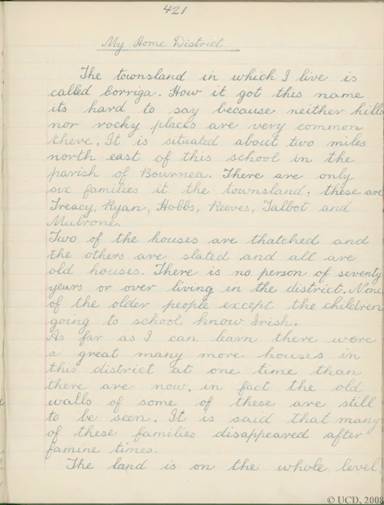 421
My Home District
The townsland in which I live is
called Corriga. How it got this name
its hard to say because neither hills
nor rocky places are very common
there. It is situated about two miles
north east of this school in the
parish of Bournea. There are only
six families it the townsland, these are
Treacy, Ryan, Hobbs, Reeves, Talbot and
Mulrone.
Two of the houses are thatched and
the others are slated and all are
old houses. There is no person of seventy
years or over living in the district. None
of the older people except the children
going to school know Irish.
As far as I can learn there were
a great many more houses in
this district at one time than
there are now, in fact the old
walls of some of these are still
to be seen. It is said that many
of these families disappeared after
famine times.
The land is on the whole level
© UCD, 2008